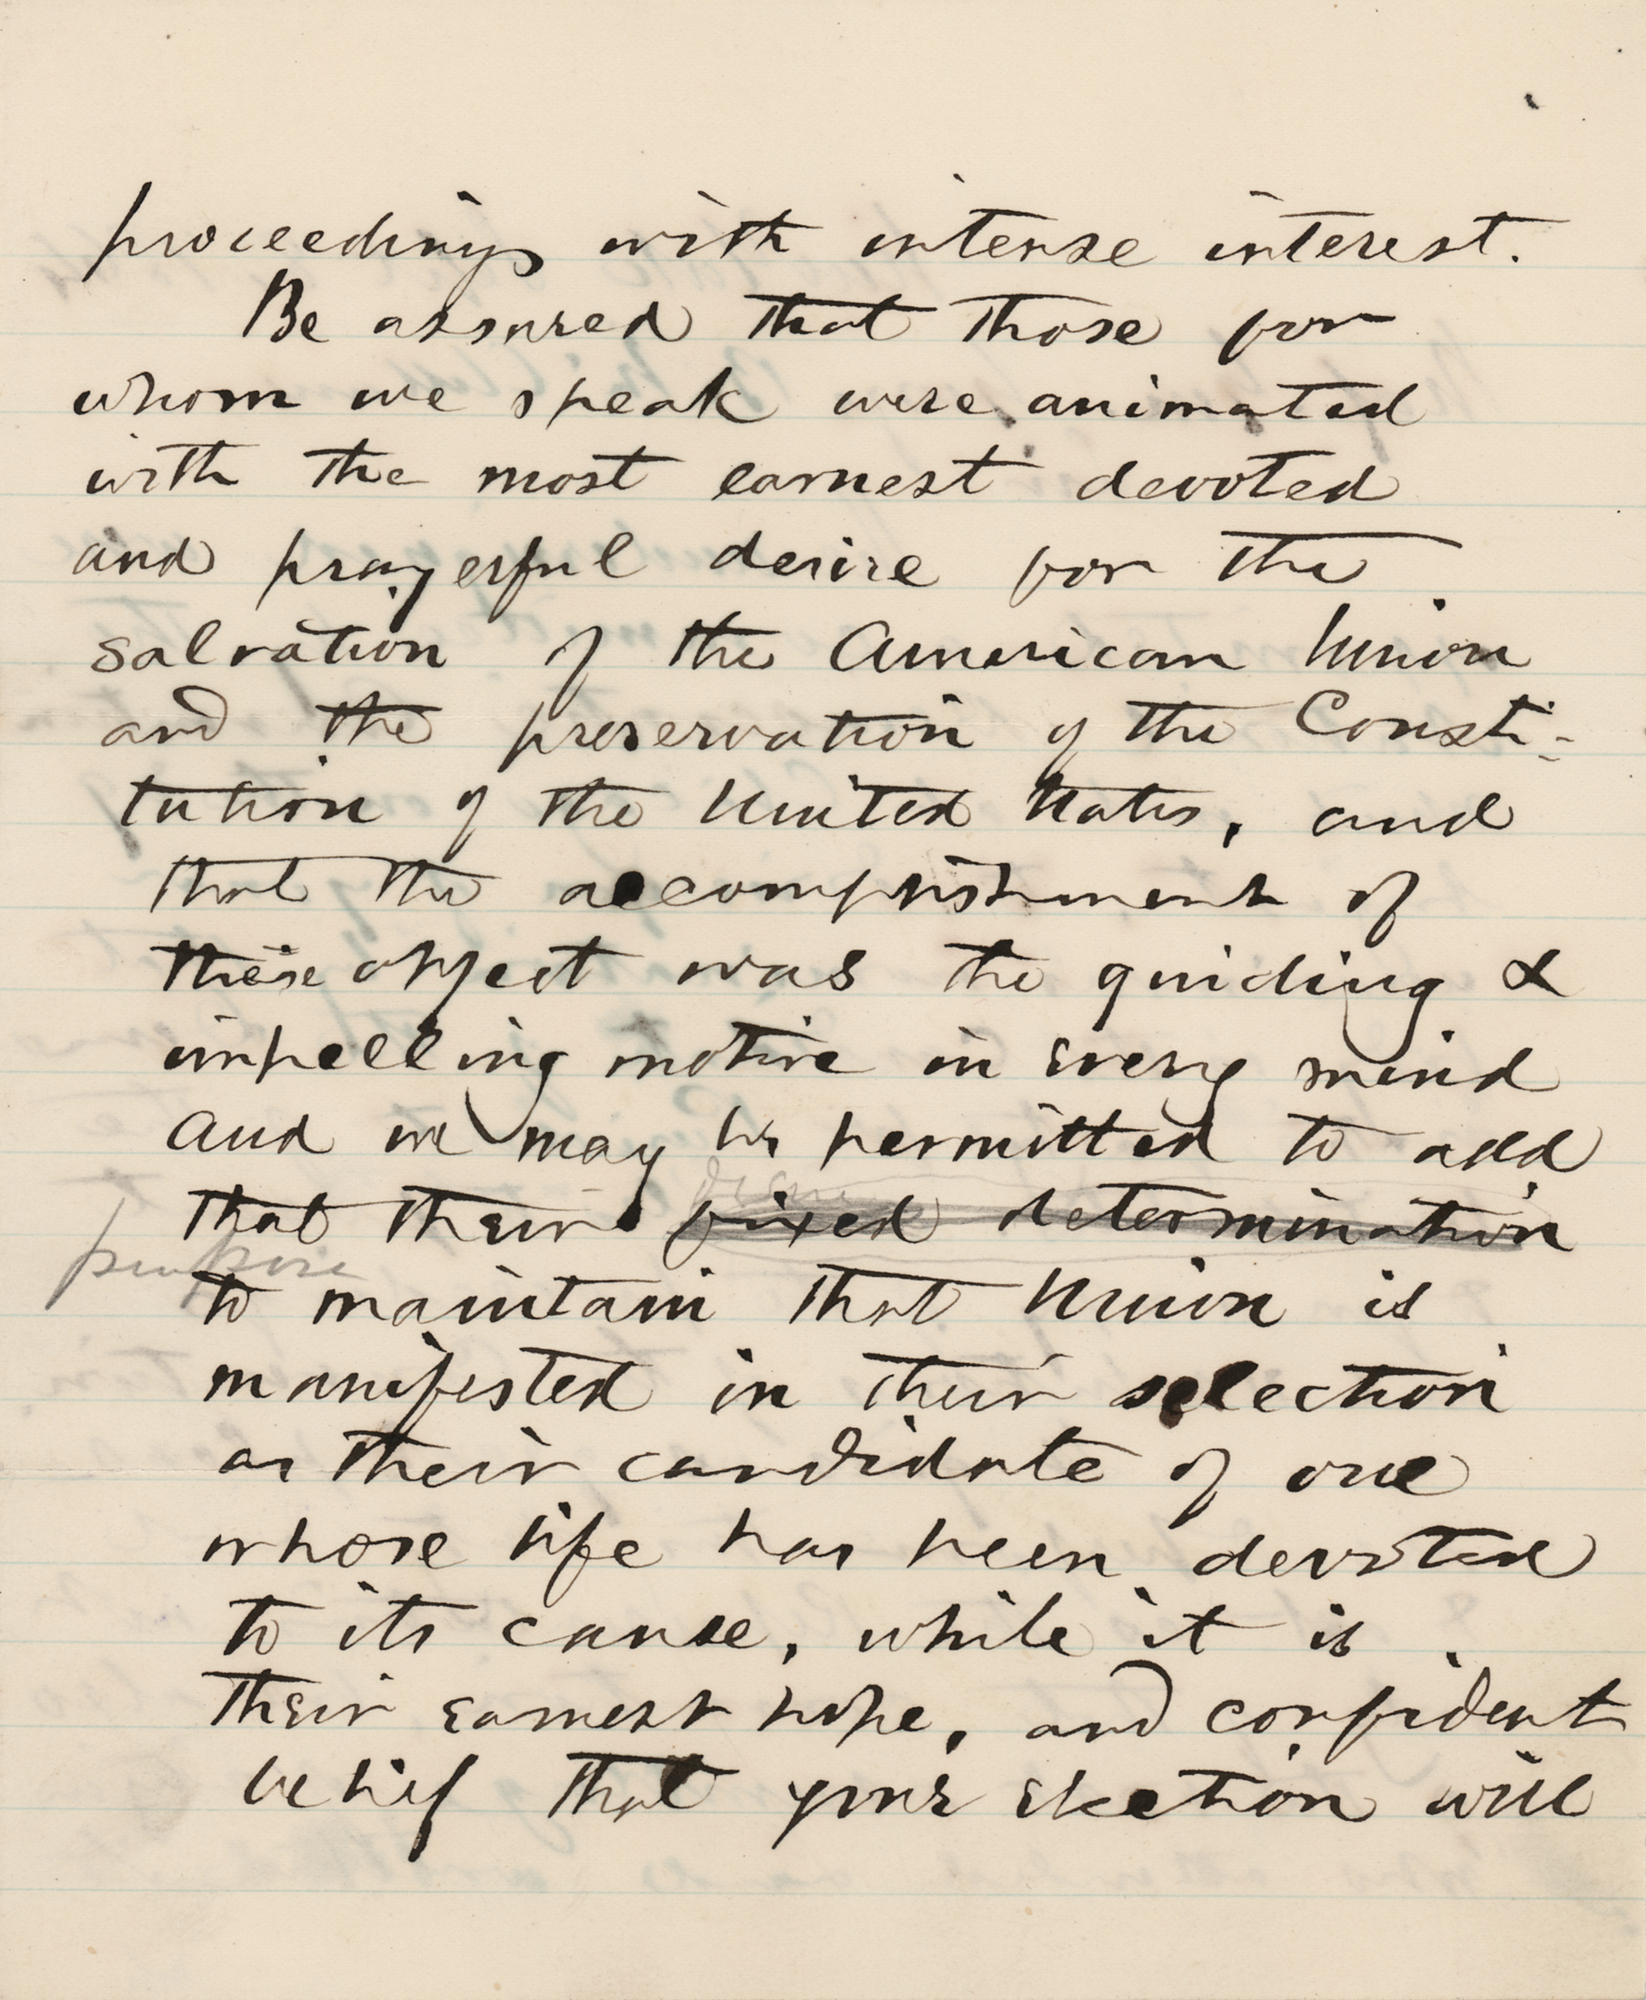 proceedings with intense interest.
Be assured that those for
whom we speak were animated
with the most earnest devoted
and prayerful desire for the
salvation of the American Union
and the preservation of the Consti-
tution of the United States, and
that the accomplishment of
these object was the guiding &
impelling motive in every mind
and we may be permitted to add
that their fixed determination
purpose
to maintain that Union is
manifested in their selection
as their candidate of one
whose life has been devoted
to its cause, while it is
their earnest hope, and confident
belief that your election will